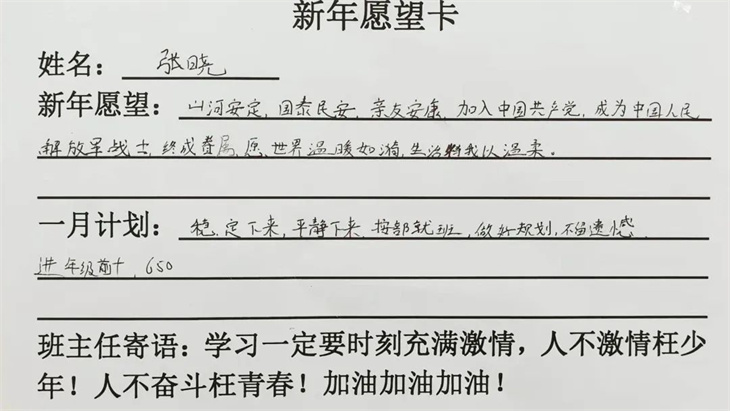 新年愿望卡
姓名：张晓
新年愿望：山河安定，国泰民安，亲友安康，加入中国共产党，成为中国人民
解放军战士，终成眷属，愿世界温暖如漪，生活我以温柔。
一月计划：稳定下来，平静下来，按部就班，做好规划，不留遗憾
进年级前十，650
班主任寄语：学习一定要时刻充满激情，人不激情枉少
年！人不奋斗枉青春！加油加油加油！